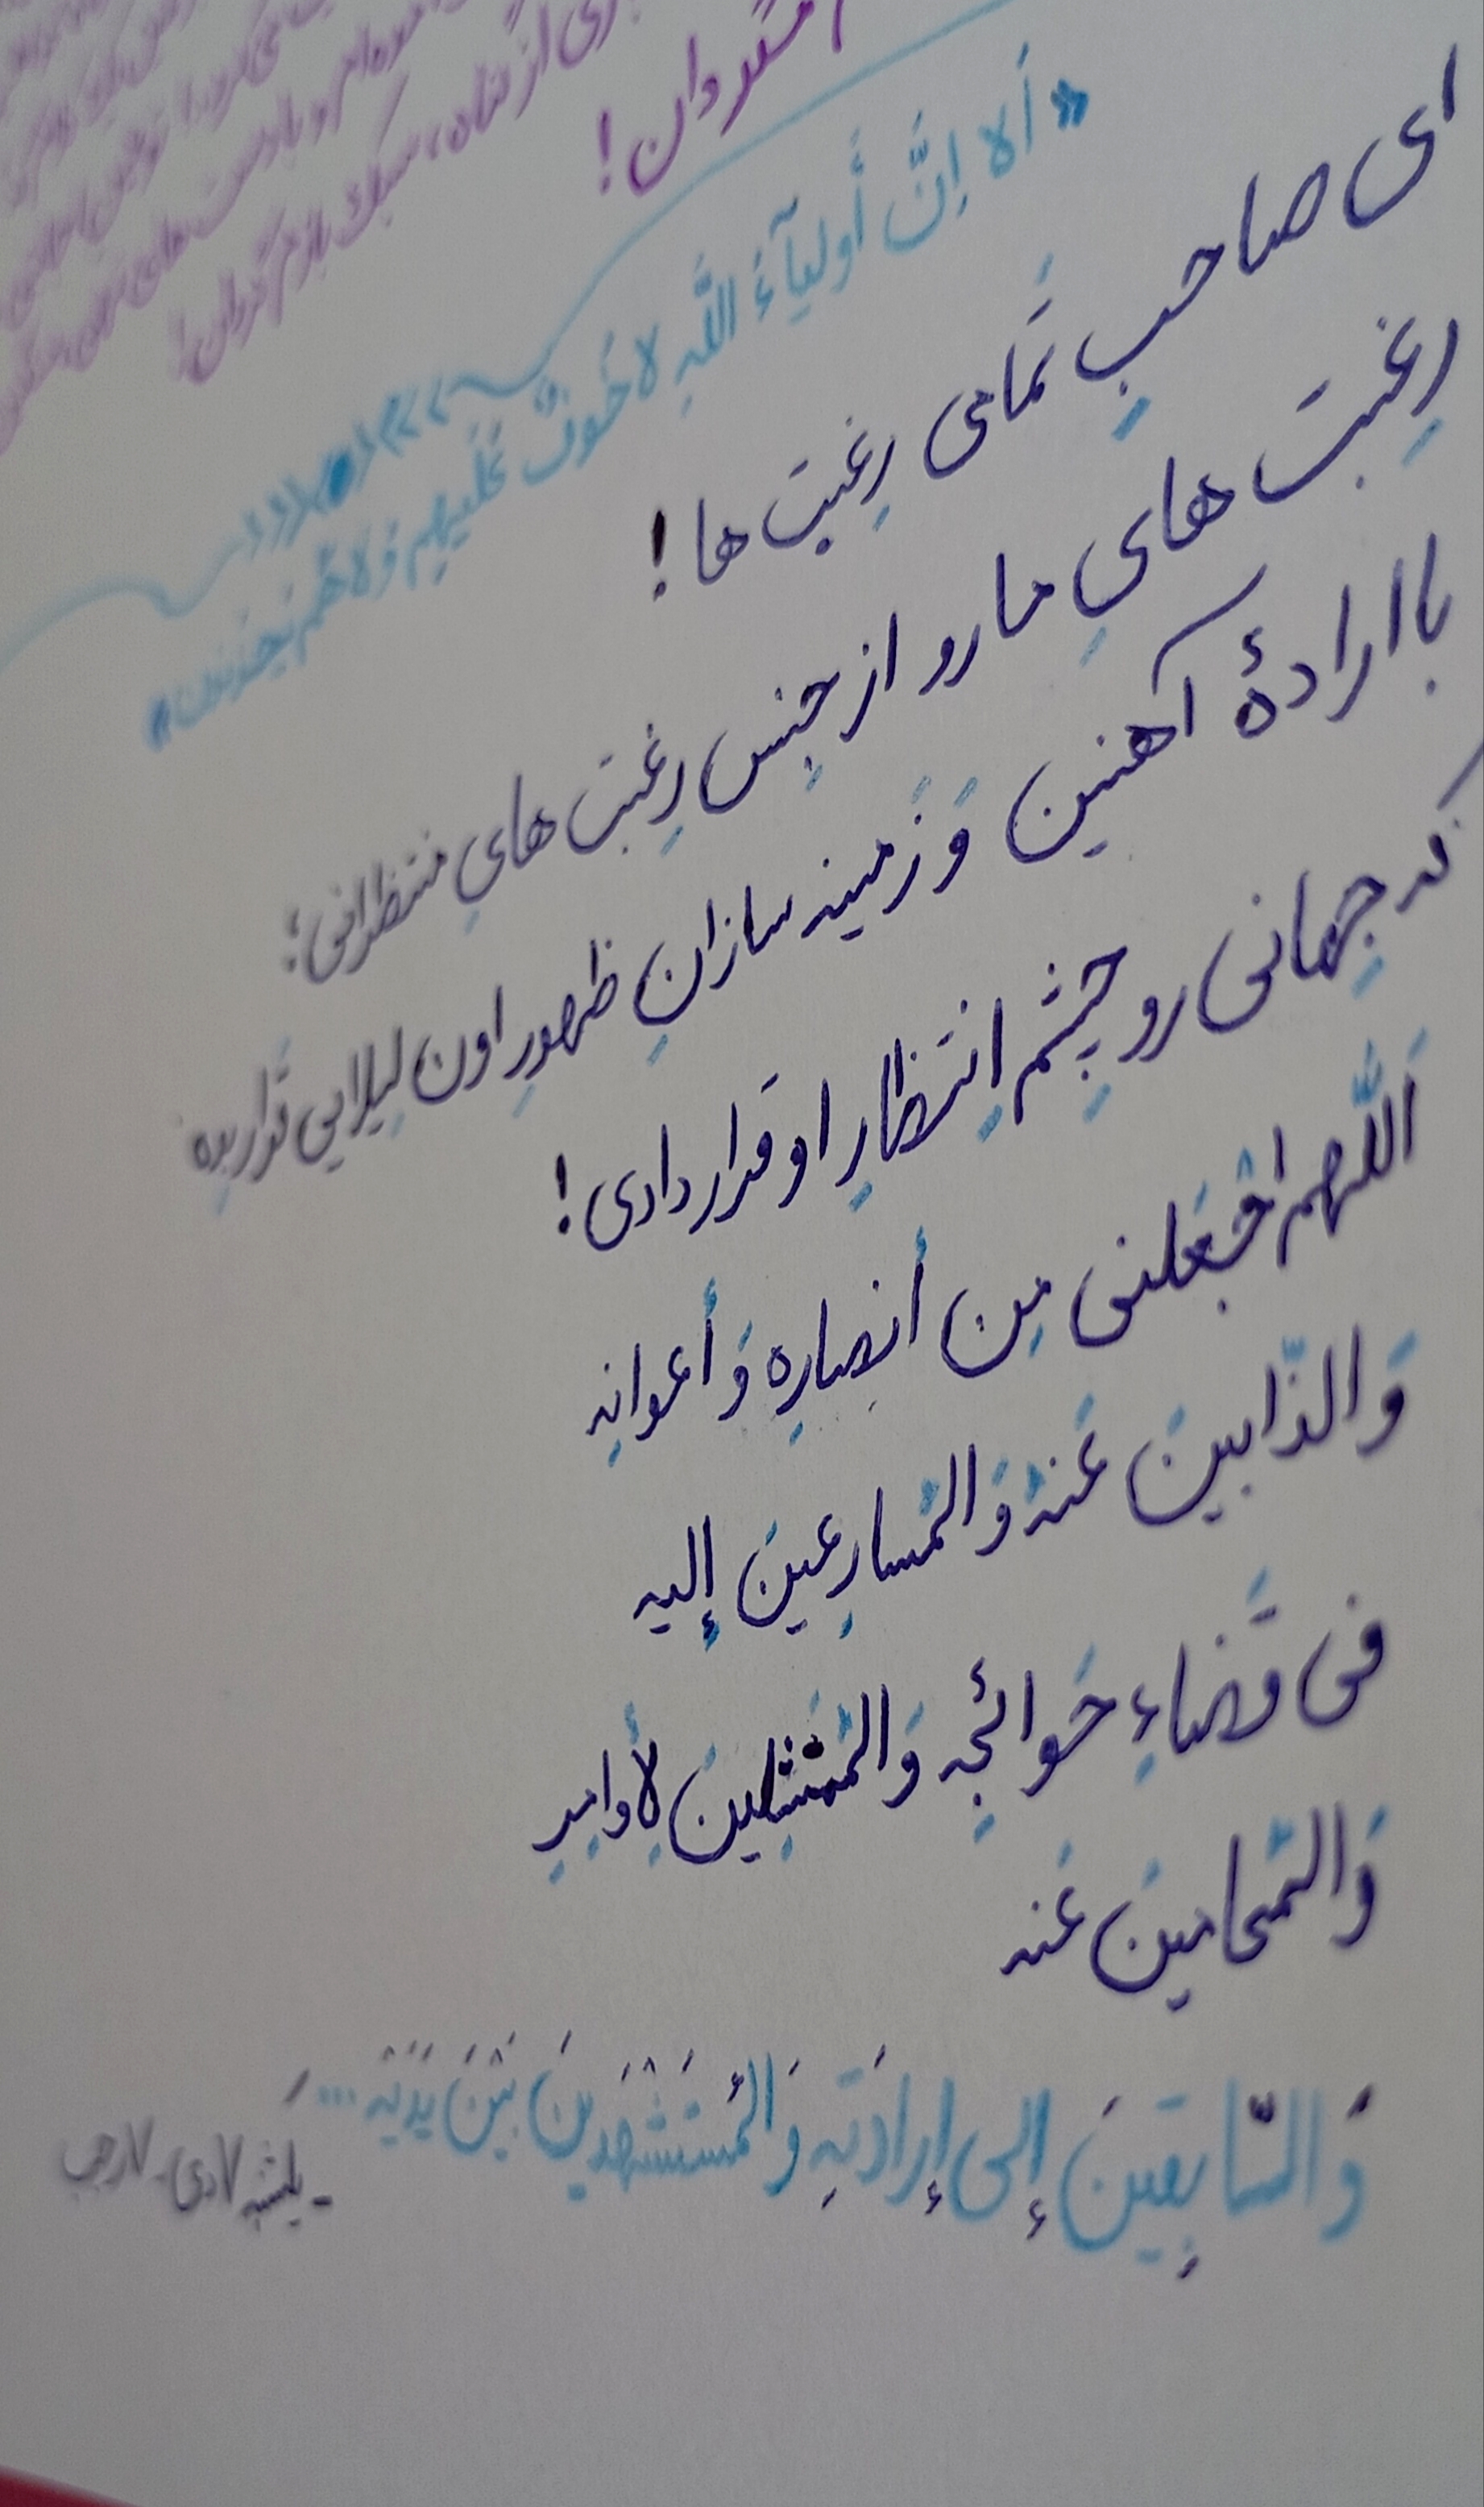 گردان!
سبک بازم گردان!
«ألا إنَّ أَولیآءَ اللهِ لا خَوفٌ عَلَیهِم وَ لا هُم یَحزَنون»
ای صاحبِ تَمامی رِغبَت ها!
رِغبَت هایِ ما رو از جِنس رِغبَت هایِ منتظرانی؛
با ارادهٔ آهنین وَ زَمینه سازانِ ظهورِ اون لیلایی قَرار بِده
که جِهانی رو چِشم اِنتَظارِ او قَرار دادی!
اَللّهم اجْعَلنی مِن أَنصارِه وَ أَعوانِه
وَ الذّابینَ عَنهُ وَ الْمُسارِعینَ إلیه
فی قَضاءِ حَوائِجِه وَ الْمُمتَثِلینَ لِأَوامِرِه
وَ الْمُحامینَ عَنه
وَ السّابِقینَ إلی إرادَتِهِ وَ الْمُستَشْهَدینَ بَیْنَ یَدَیْهِ ...
- یکشنبه ۷ دی - ۷ رجب